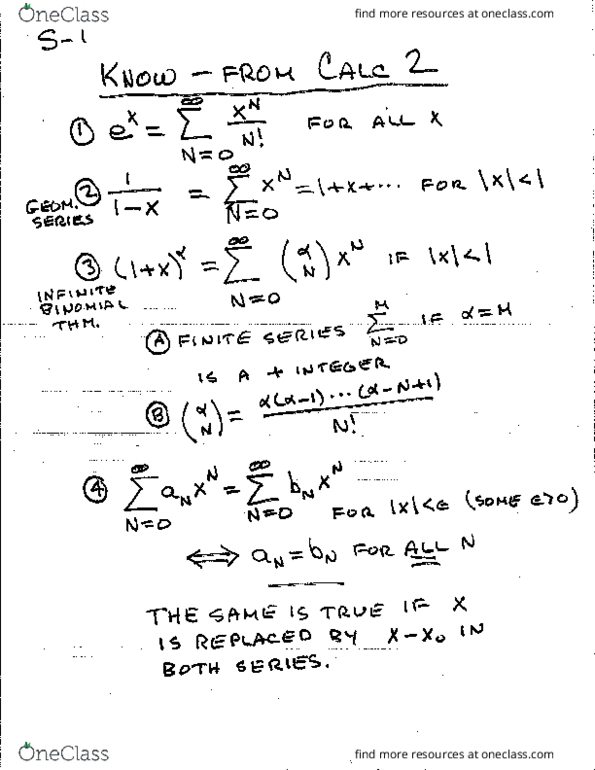 OneClass find more resources at oneclass.com
S-1
KNOW – FROM CALC 2
① e^x = ∑_{N=0}^{∞} x^N/N! FOR ALL X
GEOM. SERIES ② 1/(1-x) = ∑_{N=0}^{∞} x^N = 1+x+··· FOR |x|<1
③ (1+x)^α = ∑_{N=0}^{∞} (α N) x^N IF |x|<1
INFINITE
BINOMIAL
THM.
Ⓐ FINITE SERIES ∑_{N=0}^{M} IF α=M
IS A + INTEGER
Ⓑ (α N) = α(α-1)···(α-N+1)/N!
④ ∑_{N=0}^{∞} a_N x^N = ∑_{N=0}^{∞} b_N x^N
FOR |x|<ε (SOME ε>0)
⟺ a_N = b_N FOR ALL N
THE SAME IS TRUE IF X
IS REPLACED BY X-X₀ IN
BOTH SERIES.
OneClass find more resources at oneclass.com